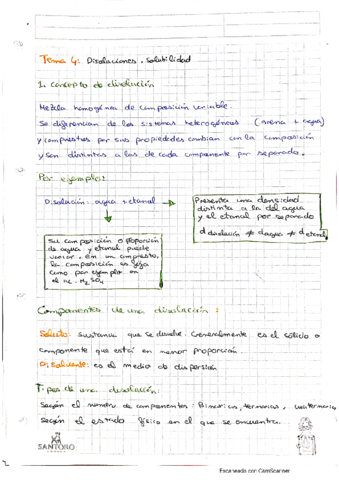 Tema 4: Disoluciones. Solubilidad
1. Concepto de disolución
Mezcla homogénea de composición variable.
Se diferencian de los sistemas heterogéneos (arena + agua)
y compuestos por sus propiedades cambian con la composición
y son distintas a las de cada componente por separado.
Por ejemplo:
Disolución: agua + etanol
Presenta una densidad
distinta a la del agua
y el etanol por separado
d disolución ≠ d agua ≠ d etanol
Su composición o proporción
de agua y etanol puede
variar. En un compuesto,
la composición es fija
como por ejemplo en
el H2SO4
Componentes de una disolución:
Soluto: sustancia que se disuelve. Generalmente es el sólido o
componente que está en menor proporción.
Disolvente: es el medio de dispersión
Tipos de una disolución:
Según el número de componentes: Binarias, ternarias, cuaternarias
Según el estado físico en el que se encuentra.
SANTORO
LONDON
Escaneado con CamScanner